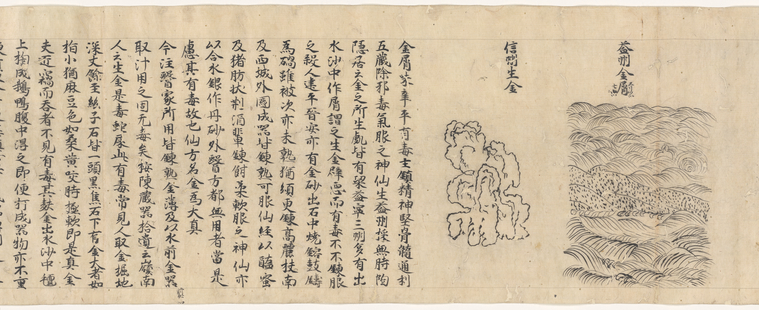 益州金屑
信州生金
金屑味辛平有毒主鎮精神堅骨髓通利
五藏除邪毒氣服之神仙生益州採無時陶
隱居云金之所生處皆有梁益寧三州多有出
水沙中作屑謂之生金辟惡而有毒不不鍊服
之殺人建平晉安亦有金砂出石中燒鎔鼓鑄
為碢雖被火亦未熟猶須更鍊高麗扶南
及西域外國成器皆鍊熟可服仙經以醯蜜
及猪肪牡荆酒輩鍊餌柔軟服之神仙亦
以合水銀作丹砂外醫方都無用者當是
慮其有毒故也仙方名金為太真
今注醫家所用皆鍊熟金薄及以水煎金器
取汁用之固無毒矣按陳藏器拾遺云嶺南
人云生金是毒蛇屎此有毒常見人取金掘地
深丈餘至紛子石皆一頭黑焦石下有金大者如
指小猶麻豆色如桑黄咬時極軟即是真金
夫近竊而吞者不見有毒其麩金出水沙中氊
上掏或鵝鴨腹中得之即便打成器物亦不重